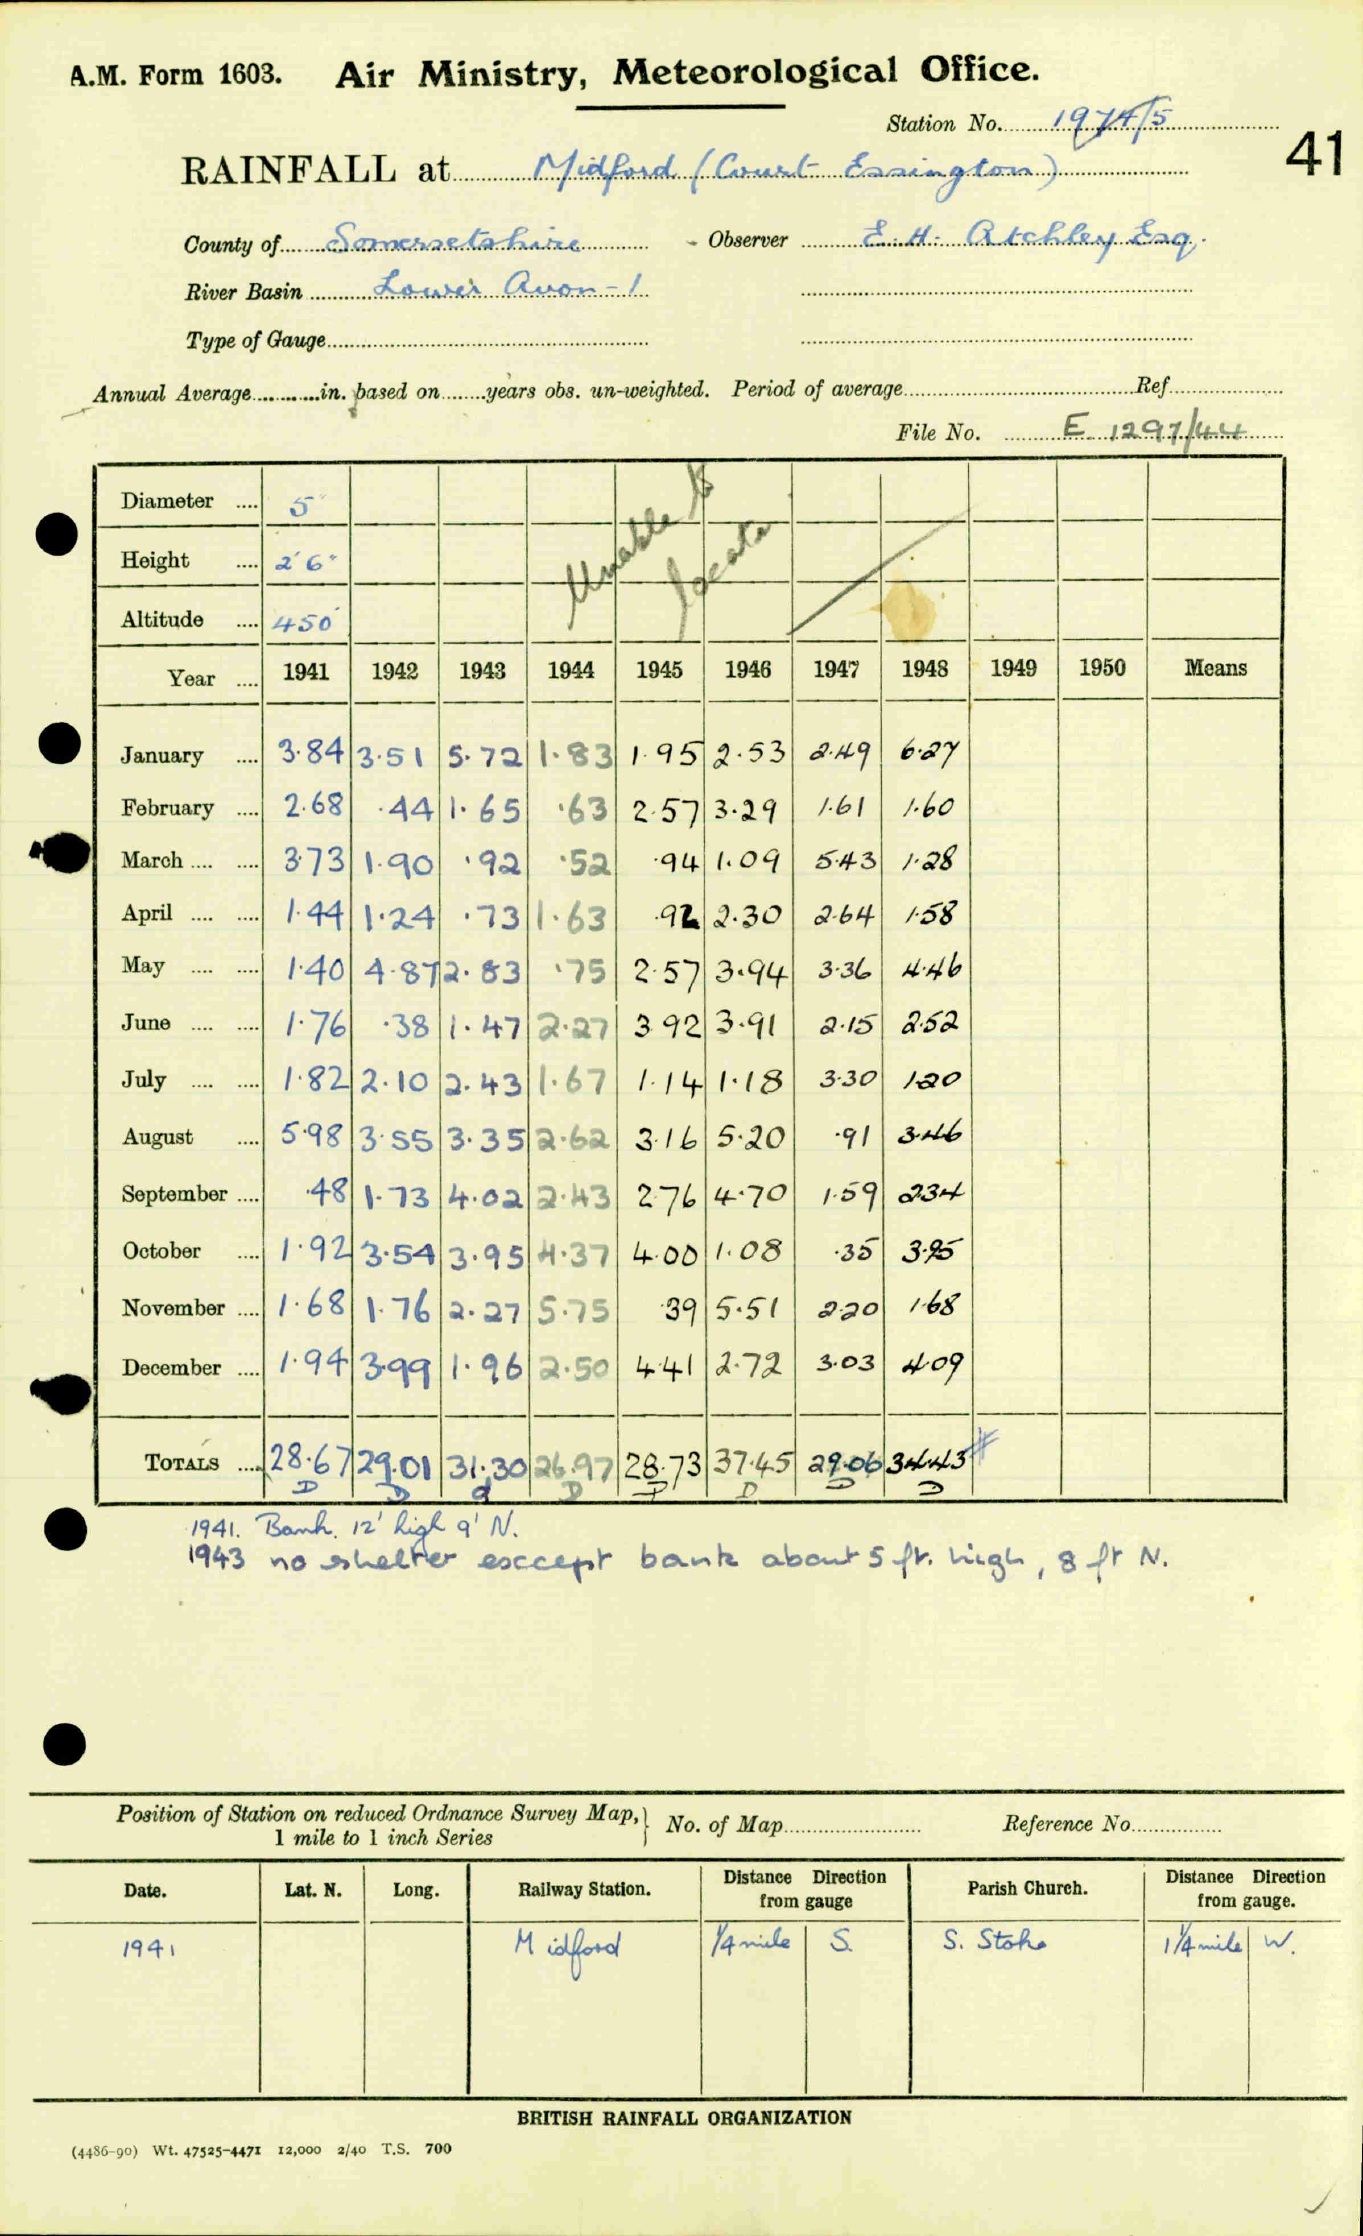 A.M. Form 1603. Air Ministry, Meteorological Office.
Station No. 1974/5
41
RAINFALL at Midford (Court Essington)
County of Somersetshire Observer E. H. Atchley Esq.
River Basin Lower Avon - 1
Type of Gauge
Annual Average in. based on years obs. un-weighted. Period of average Ref
File No. E 1297/44
Diameter 5"
Height 2' 6"
Altitude 450'
Unable to
locate
Year 1941 1942 1943 1944 1945 1946 1947 1948 1949 1950 Means
January 3.84 3.51 5.72 1.83 1.95 2.53 2.49 6.27
February 2.68 .44 1.65 .63 2.57 3.29 1.61 1.60
March 3.73 1.90 .92 .52 .94 1.09 5.43 1.28
April 1.44 1.24 .73 1.63 .92 2.30 2.64 1.58
May 1.40 4.87 2.83 .75 2.57 3.94 3.36 4.46
June 1.76 .38 1.47 2.27 3.92 3.91 2.15 2.52
July 1.82 2.10 2.43 1.67 1.14 1.18 3.30 1.20
August 5.98 3.55 3.35 2.62 3.16 5.20 .91 3.46
September .48 1.73 4.02 2.43 2.76 4.70 1.59 2.34
October 1.92 3.54 3.95 4.37 4.00 1.08 .35 3.95
November 1.68 1.76 2.27 5.75 .39 5.51 2.20 1.68
December 1.94 3.99 1.96 2.50 4.41 2.72 3.03 4.09
TOTALS 28.67 29.01 31.30 26.97 28.73 37.45 29.06 34.43 #
D D d D D D D D
1941. Bank. 12' high 9' N.
1943 no shelter except bank about 5 ft. high, 8 ft N.
Position of Station on reduced Ordnance Survey Map, No. of Map Reference No.
1 mile to 1 inch Series
Date. Lat. N. Long. Railway Station. Distance Direction from gauge Parish Church. Distance Direction from gauge.
1941 Midford 1/4 mile S. S. Stoke 1 1/4 mile W.
BRITISH RAINFALL ORGANIZATION
(4486-90) Wt. 47525-4471 12,000 2/40 T.S. 700